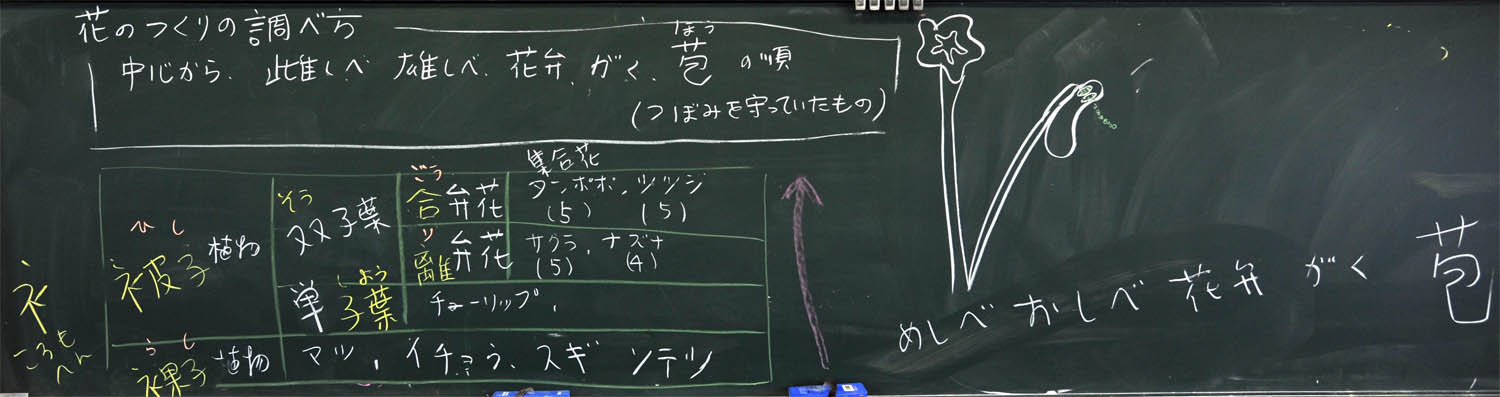 花のつくりの調べ方
ほう
中心から、雌しべ 雄しべ、花弁、がく、苞 の順
(つぼみを守っていたもの)
集合花
そう ごう タンポポ、ツツジ
双子葉 合弁花 (5) (5)
ひし り サクラ、ナズナ
被子植物 離弁花 (5) (4)
しよう
単子葉 チューリップ、
らし
裸子植物 マツ、イチョウ、スギ ソテツ
衤
ころもへん
めしべ おしべ 花弁 がく 苞